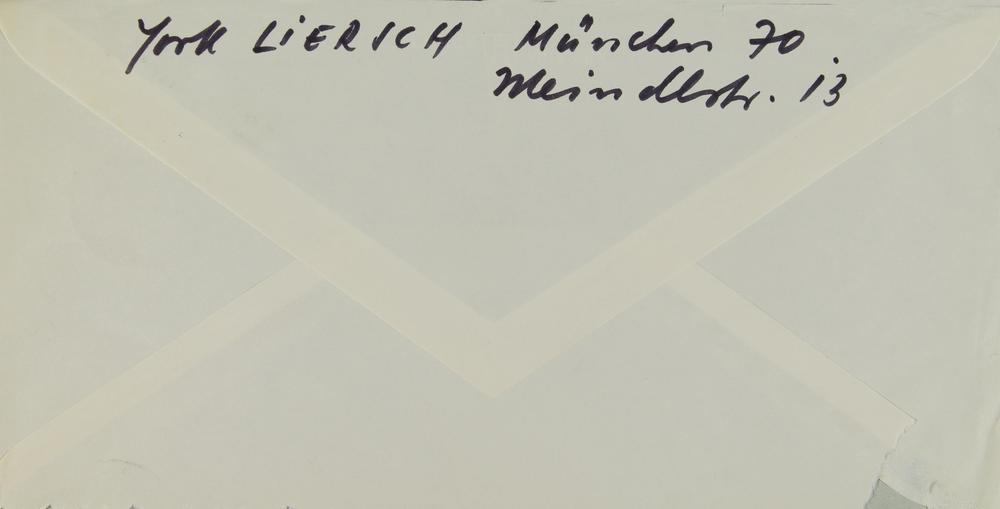 York LiERSCH München 70
Meindlstr. 13